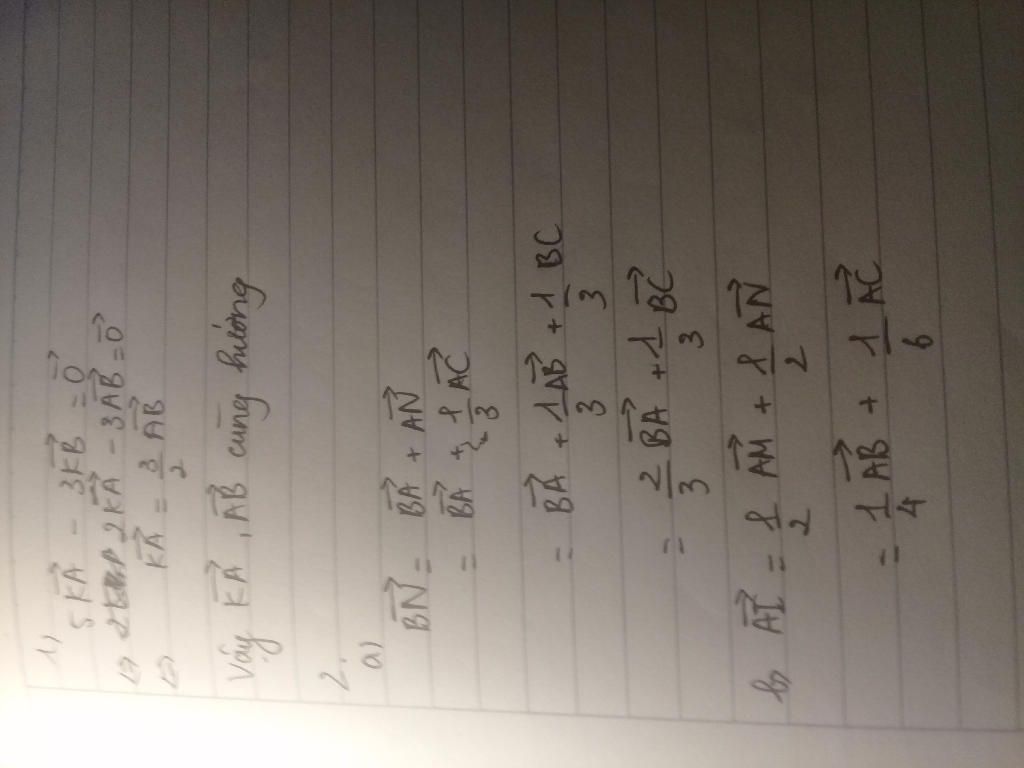 1)
5\overrightarrow{KA} - 3\overrightarrow{KB} = \overrightarrow{0}
⇔ 2\overrightarrow{KA} - 3\overrightarrow{AB} = \overrightarrow{0}
⇔ \overrightarrow{KA} = \frac{3}{2}\overrightarrow{AB}
Vậy \overrightarrow{KA}, \overrightarrow{AB} cùng hướng
2.
a)
\overrightarrow{BN} = \overrightarrow{BA} + \overrightarrow{AN}
= \overrightarrow{BA} + \frac{1}{3}\overrightarrow{AC}
= \overrightarrow{BA} + \frac{1}{3}\overrightarrow{AB} + \frac{1}{3}BC
= \frac{2}{3}\overrightarrow{BA} + \frac{1}{3}\overrightarrow{BC}
b) \overrightarrow{AI} = \frac{1}{2}\overrightarrow{AM} + \frac{1}{2}\overrightarrow{AN}
= \frac{1}{4}\overrightarrow{AB} + \frac{1}{6}\overrightarrow{AC}